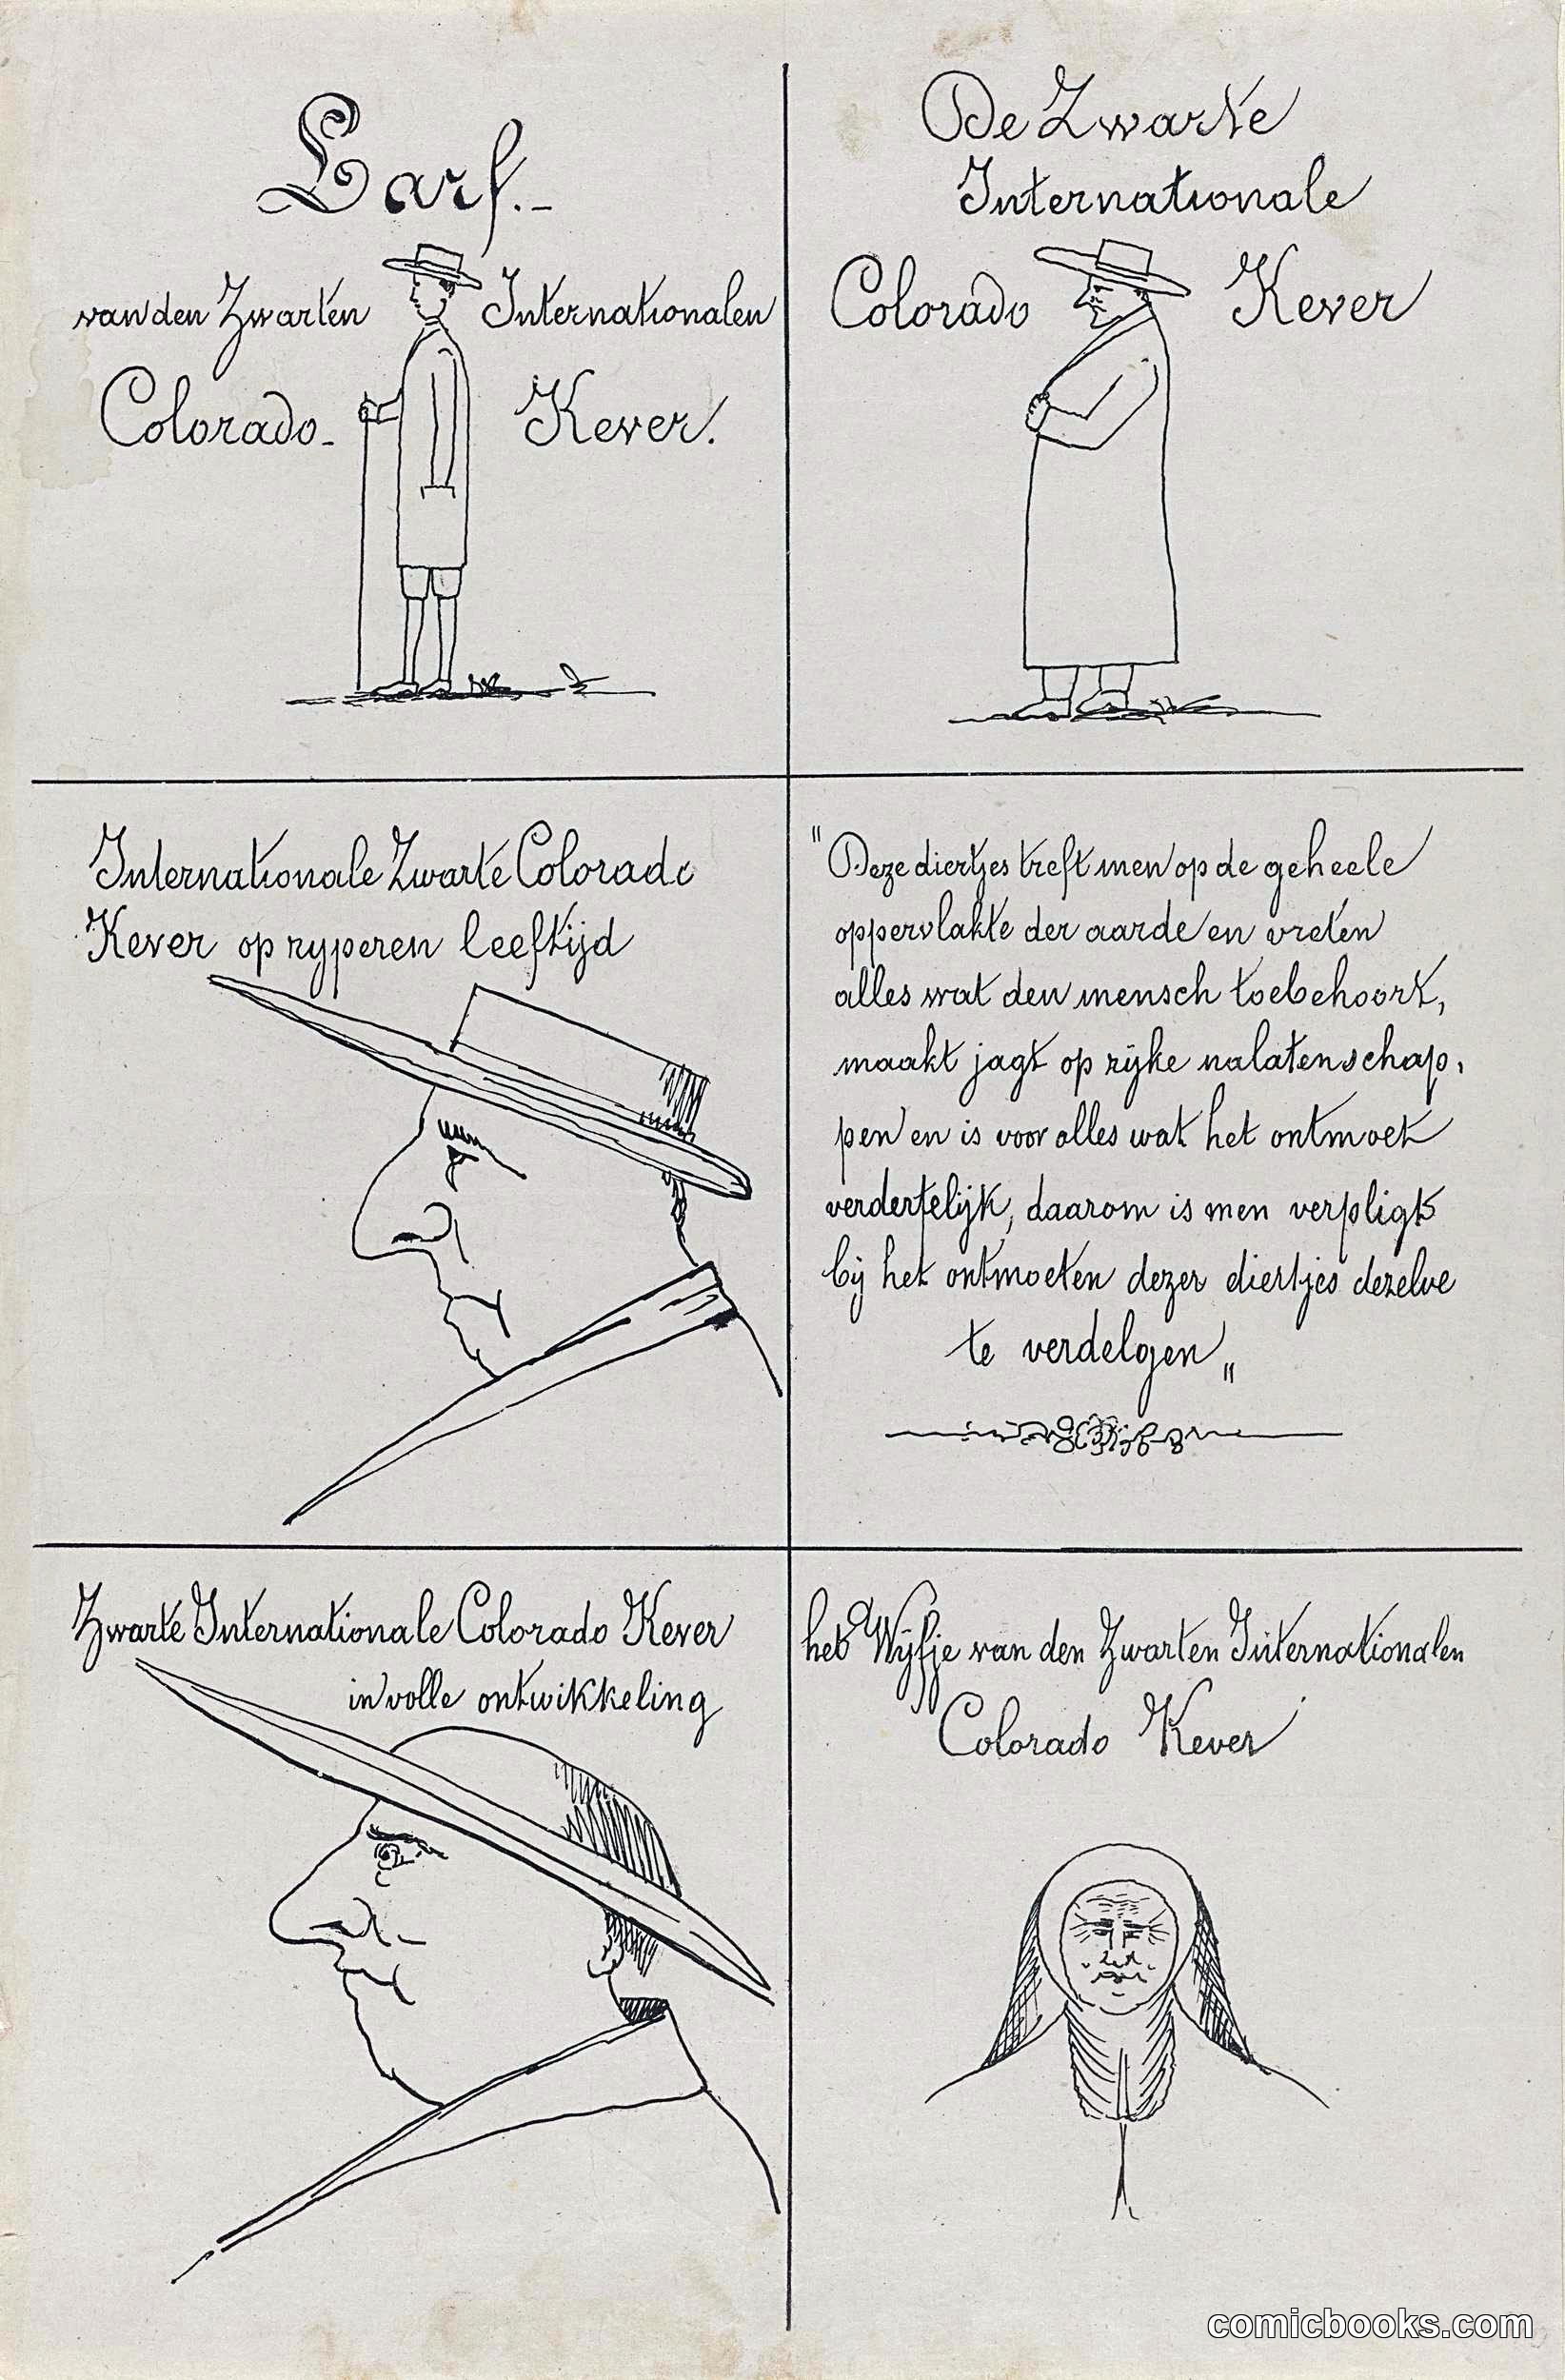 Larf.-
van den Zwarten Internationalen
Colorado- Kever.
De Zwarte
Internationale
Colorado Kever
Internationale Zwarte Colorado
Kever op ryperen leeftijd
"Deze diertjes treft men op de geheele
oppervlakte der aarde en vreten
alles wat den mensch toebehoort,
maakt jagt op rijke nalatenschap-
pen en is voor alles wat het ontmoet
verderfelijk, daarom is men verpligt
bij het ontmoeten dezer diertjes dezelve
te verdelgen„
Zwarte Internationale Colorado Kever
in volle ontwikkeling
het Wijfje van den Zwarten Internationalen
Colorado Kever
comicbooks.com